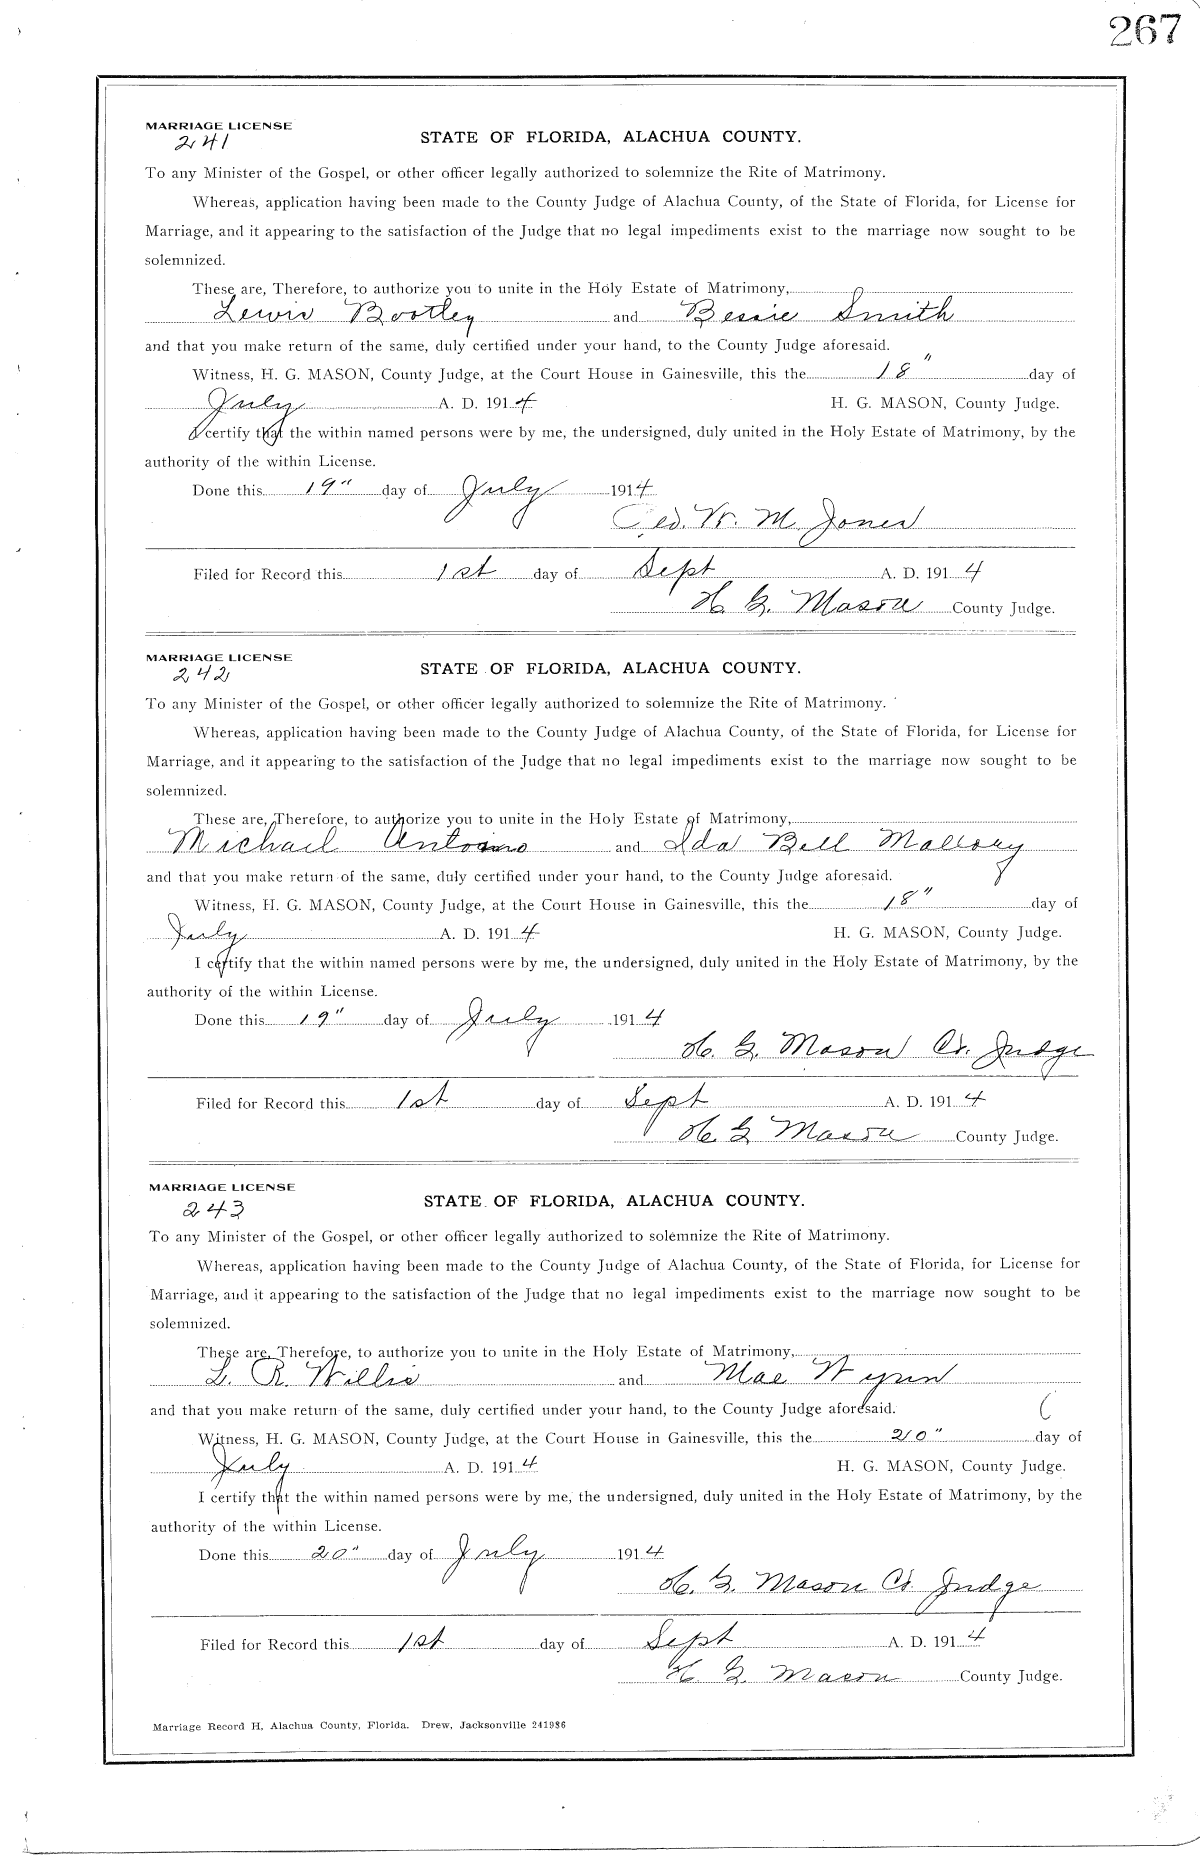 267
MARRIAGE LICENSE
241
STATE OF FLORIDA, ALACHUA COUNTY.
To any Minister of the Gospel, or other officer legally authorized to solemnize the Rite of Matrimony.
Whereas, application having been made to the County Judge of Alachua County, of the State of Florida, for License for
Marriage, and it appearing to the satisfaction of the Judge that no legal impediments exist to the marriage now sought to be
solemnized.
These are, Therefore, to authorize you to unite in the Holy Estate of Matrimony,
Lewis Bootley and Bessie Smith
and that you make return of the same, duly certified under your hand, to the County Judge aforesaid.
Witness, H. G. MASON, County Judge, at the Court House in Gainesville, this the 18" day of
July A. D. 1914 H. G. MASON, County Judge.
I certify that the within named persons were by me, the undersigned, duly united in the Holy Estate of Matrimony, by the
authority of the within License.
Done this 19" day of July 1914
W. M. Jones
Filed for Record this 1st day of Sept A. D. 1914
H. G. Mason County Judge.
MARRIAGE LICENSE
242
STATE OF FLORIDA, ALACHUA COUNTY.
To any Minister of the Gospel, or other officer legally authorized to solemnize the Rite of Matrimony.
Whereas, application having been made to the County Judge of Alachua County, of the State of Florida, for License for
Marriage, and it appearing to the satisfaction of the Judge that no legal impediments exist to the marriage now sought to be
solemnized.
These are, Therefore, to authorize you to unite in the Holy Estate of Matrimony,
Michail and Ida Bell Mallory
and that you make return of the same, duly certified under your hand, to the County Judge aforesaid.
Witness, H. G. MASON, County Judge, at the Court House in Gainesville, this the 18" day of
July A. D. 1914 H. G. MASON, County Judge.
I certify that the within named persons were by me, the undersigned, duly united in the Holy Estate of Matrimony, by the
authority of the within License.
Done this 19" day of July 1914
H. G. Mason Co. Judge
Filed for Record this 1st day of Sept A. D. 1914
H. G Mason County Judge.
MARRIAGE LICENSE
243
STATE OF FLORIDA, ALACHUA COUNTY.
To any Minister of the Gospel, or other officer legally authorized to solemnize the Rite of Matrimony.
Whereas, application having been made to the County Judge of Alachua County, of the State of Florida, for License for
Marriage, and it appearing to the satisfaction of the Judge that no legal impediments exist to the marriage now sought to be
solemnized.
These are, Therefore, to authorize you to unite in the Holy Estate of Matrimony,
L. R. Willis and Mae Wynn
and that you make return of the same, duly certified under your hand, to the County Judge aforesaid.
Witness, H. G. MASON, County Judge, at the Court House in Gainesville, this the 20" day of
July A. D. 1914 H. G. MASON, County Judge.
I certify that the within named persons were by me, the undersigned, duly united in the Holy Estate of Matrimony, by the
authority of the within License.
Done this 20" day of July 1914
H. G. Mason Co. Judge
Filed for Record this 1st day of Sept A. D. 1914
H. G. Mason County Judge.
Marriage Record H, Alachua County, Florida. Drew, Jacksonville 241986